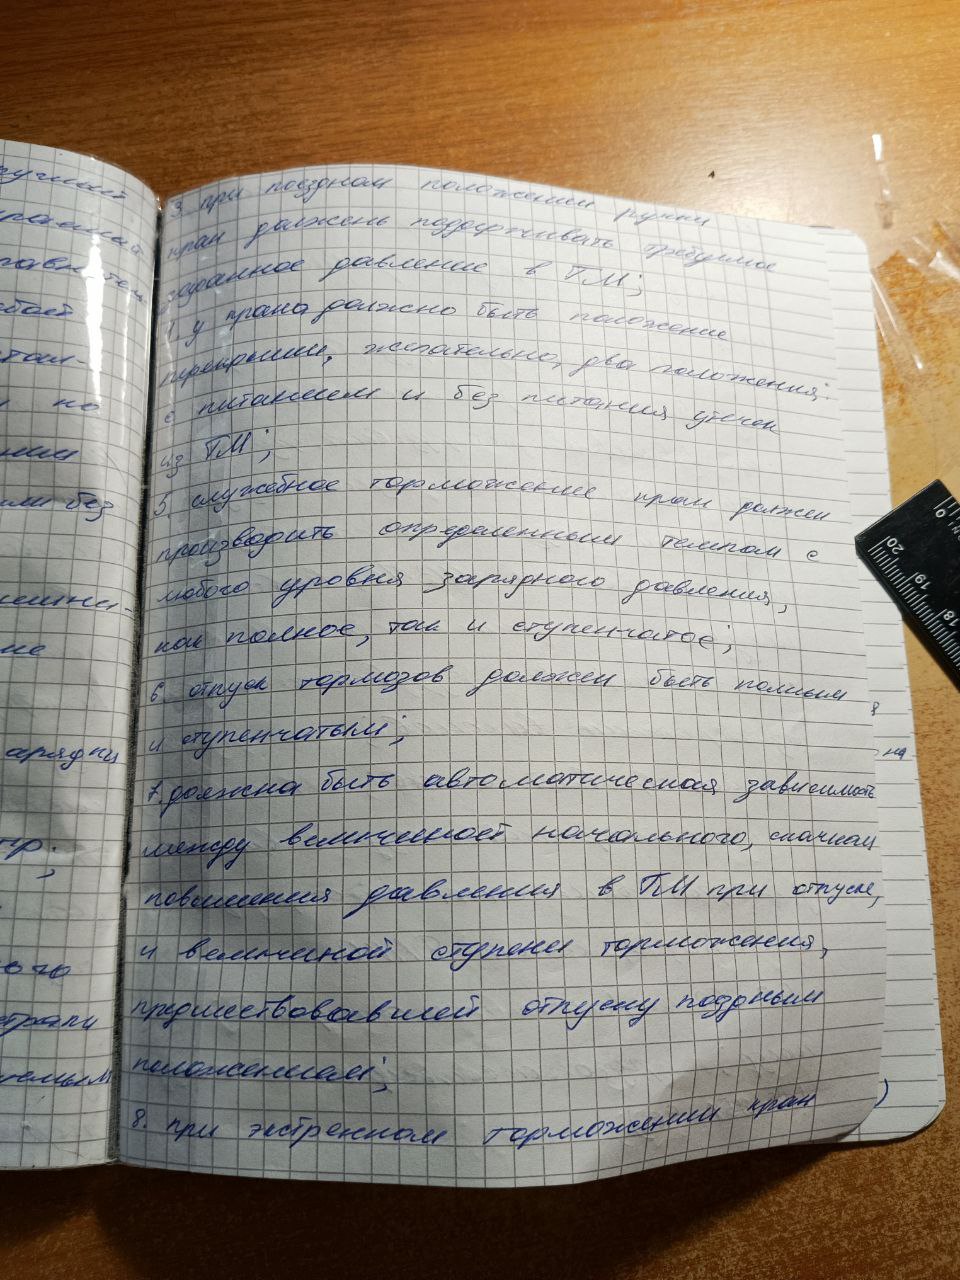 3. при поездном положении ручки
кран должень поддерживать требуемое
заданное давление в ТМ;
4. у крана должно быть положение
перекрыши, желательно, два положения:
с питанием и без питания утечек
из ТМ;
5. служебное торможение кран должен
производить определенным темпом с
любого уровня зарядного давления,
как полное, так и ступенчатое;
6. отпуск тормозов должен быть полным
и ступенчатым;
7. должна быть автоматическая зависимость
между величиной начального, скачком
повышения давления в ТМ при отпуске,
и величиной ступени торможения,
предшествовавшей отпуску поездным
положением;
8. при экстренном торможении кран
но
ими без
не
зарядки
пр.;
на
20
19
18